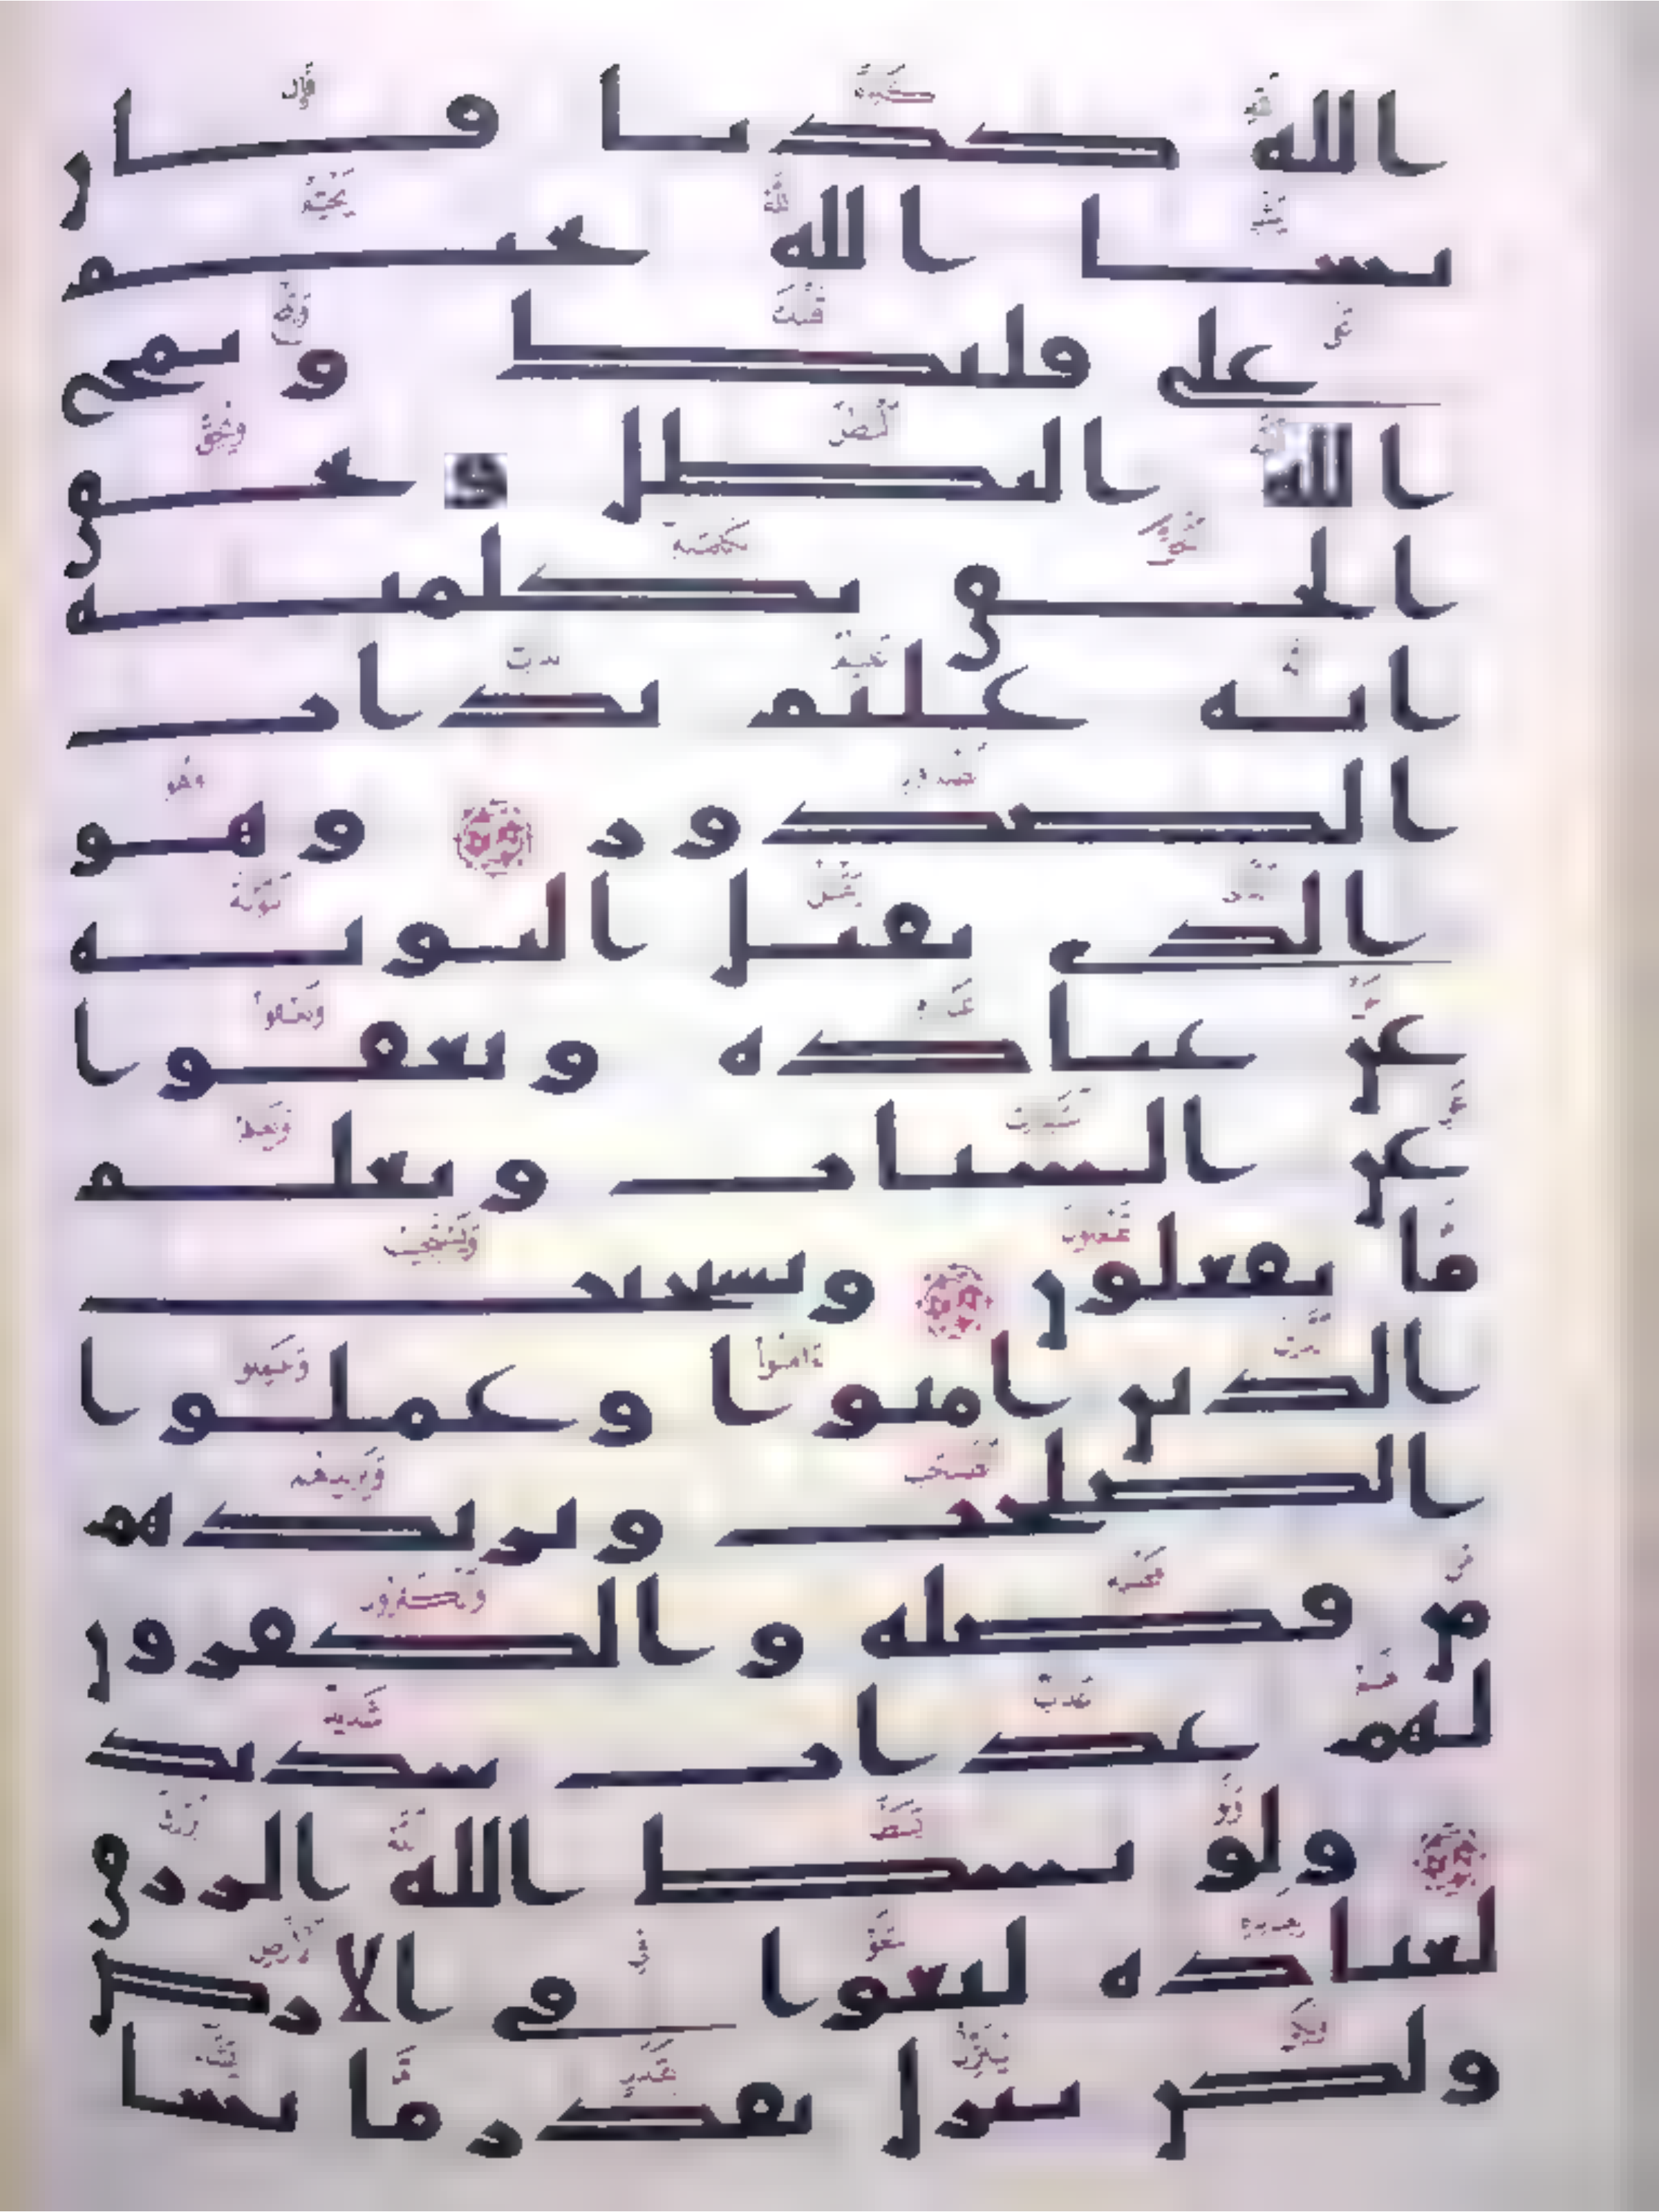 الله كذبا فان
يشا الله يختم
على قلبك ويمح
الله البطل و يحق
الحق بكلمته
انه عليم بذات
الصدور وهو
الذي يقبل التوبه
عن عباده ويعفوا
عن السيات ويعلم
ما تفعلون ويستجيب
الذين امنوا وعملوا
الصلحت ويزيدهم
من فضله والكفرون
لهم عذاب شديد
ولو بسط الله الرزق
لعباده لبغوا في الارض
ولكن ينزل بقدر ما يشا